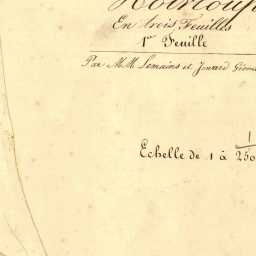 En trois Feuilles
1re Feuille
Par M.M. Lemains et Jouvard
Echelle de 1 à 1
250